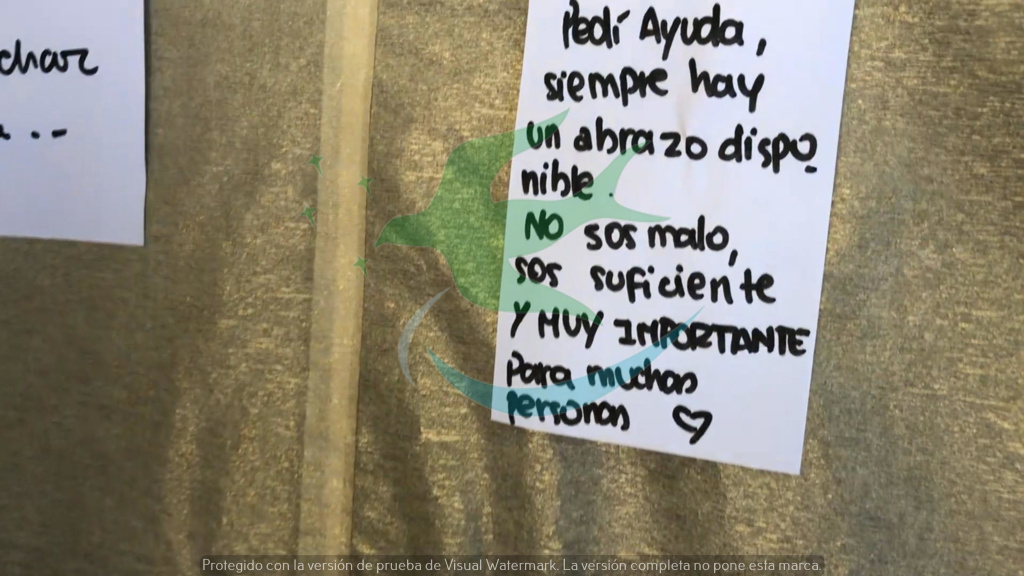 char
a..-
Pedí Ayuda,
siempre hay
un abrazo dispo
nible.
NO sos malo,
sos suficiente
Y MUY IMPORTANTE
Para muchas
personas ♡
Protegido con la versión de prueba de Visual Watermark. La versión completa no pone esta marca.